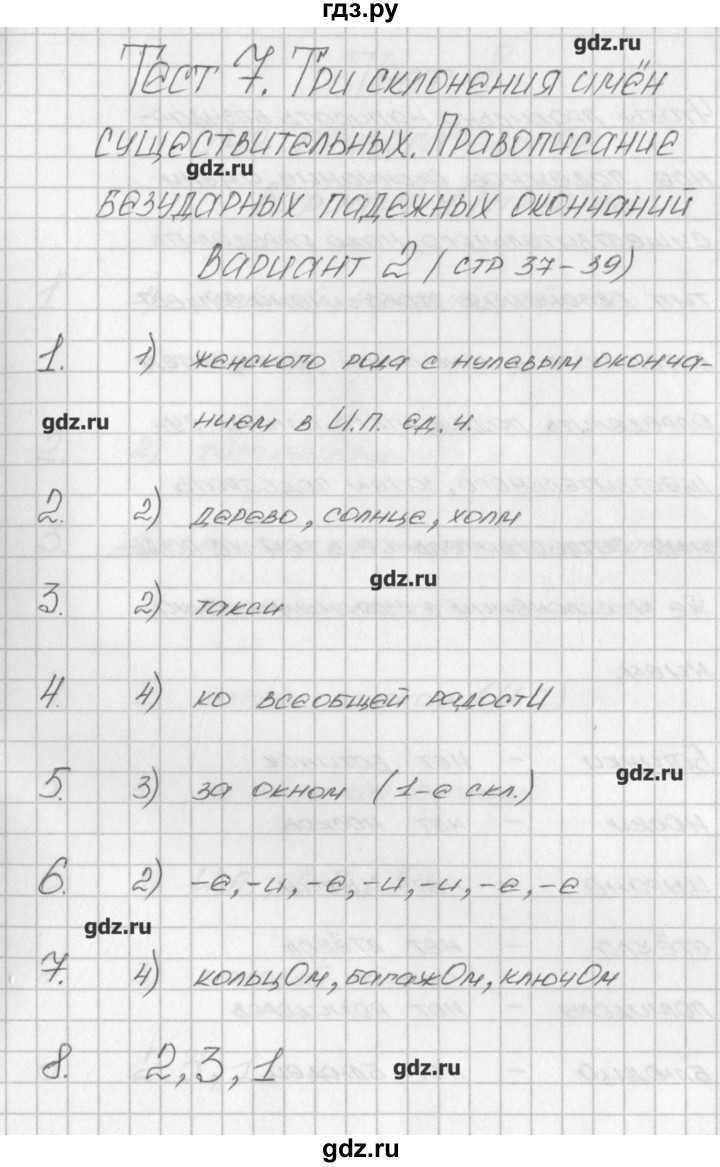 гдз.ру
gdz.ru
Тест 7. Три склонения имён
существительных. Правописание
gdz.ru
безударных падежных окончаний
Вариант 2 (стр 37-39)
1. 1) женского рода с нулевым оконча-
gdz.ru
нием в И.П. ед.ч.
2. 2) дерево, солнце, холм
gdz.ru
3. 2) такси
4. 4) ко всеобщей радостИ
gdz.ru
5. 3) за окном (1-е скл.)
6. 2) -е,-и,-е,-и,-и,-е,-е
gdz.ru
7. 4) кольцОм, багажОм, ключОм
8. 2,3,1
gdz.ru
gdz.ru